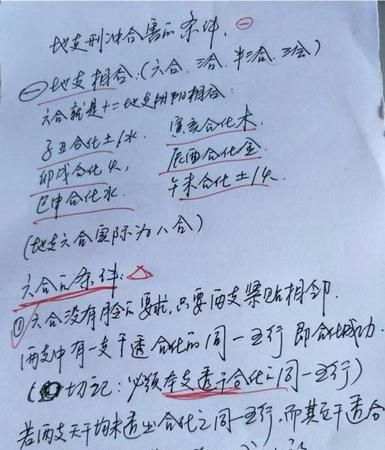 地支刑冲合害的条件. ㊀
㊀地支相合:(六合、三合、半三合、三会)
六合就是十二地支阴阳相合:
子丑合化土/水. 寅亥合化木.
卯戌合化火, 辰酉合化金.
巳申合化水. 午未合化土/火.
(地支六合实际为八合)
六合的条件:△
①六合没有月令的要求,只要两支紧贴相邻.
两支中有一支干透合化的同一五行即合化成功.
(切记:必须本支透干合化之同一五行)
若两支天干均未透出合化之同一五行,而其它干透合